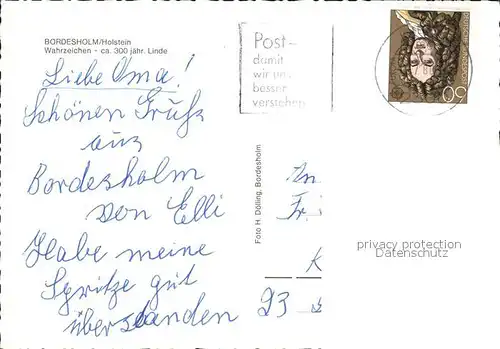 BORDESHOLM/Holstein
Wahrzeichen - ca. 300 jähr. Linde
Liebe Oma!
Schönen Gruß
aus
Bordesholm
von Elli
Habe meine
Spritze gut
überstanden
Post-
damit
wir uns
besser
verstehen
60
Foto H. Dölling, Bordesholm
An
Fr.
K
23
privacy protection
Datenschutz